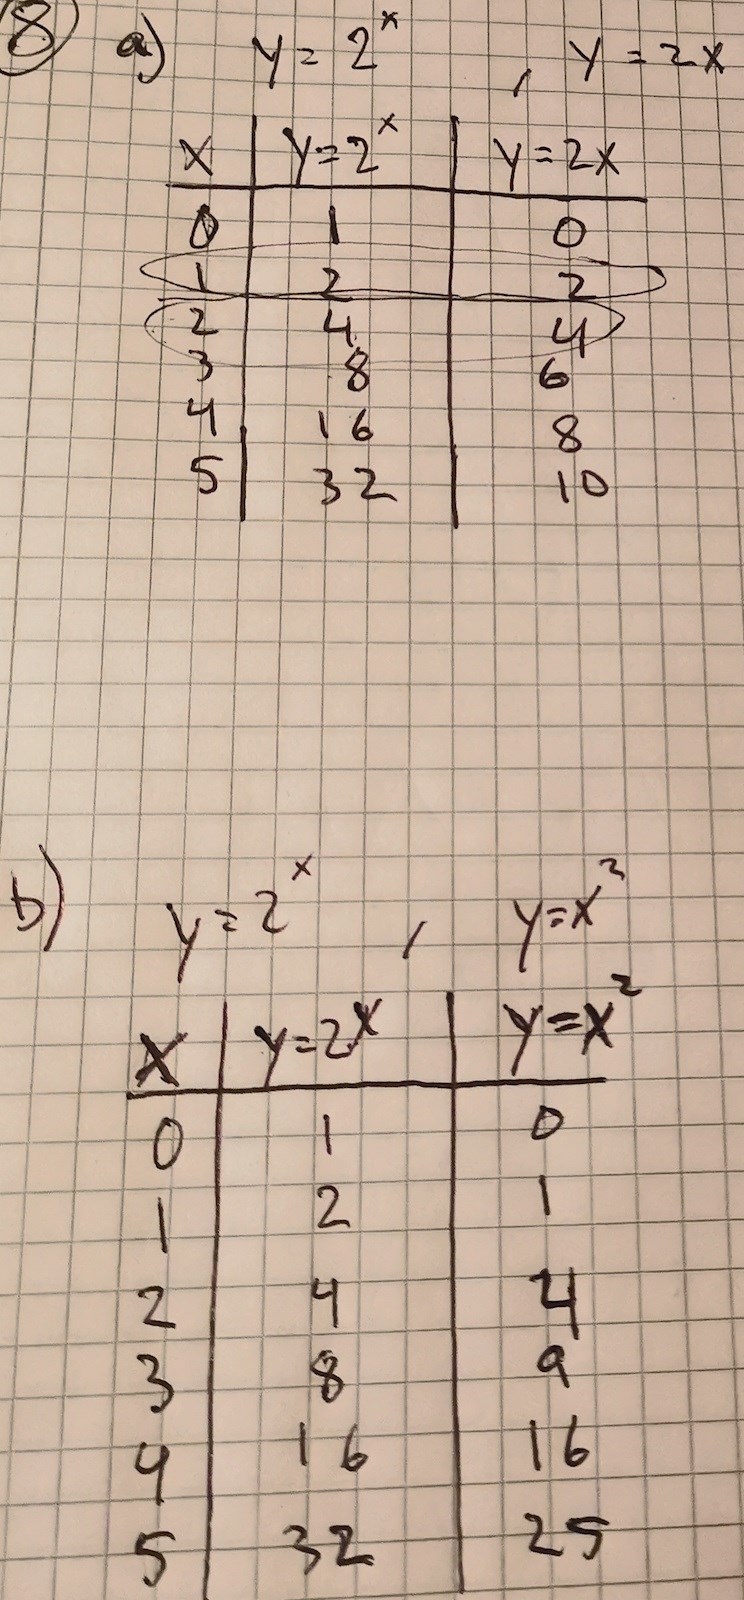 8) a) y = 2^x , y = 2x
x y = 2^x y = 2x
0 1 0
1 2 2
2 4 4
3 8 6
4 16 8
5 32 10
b) y = 2^x , y = x^2
x y = 2^x y = x^2
0 1 0
1 2 1
2 4 4
3 8 9
4 16 16
5 32 25